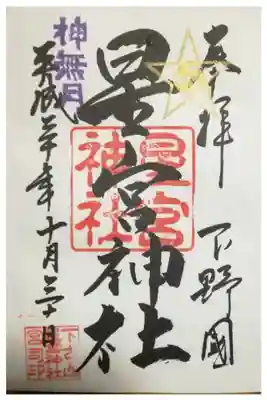 奉拝
下野國
星宮神社
星宮
神社
神無月
平成三十年十月三十日